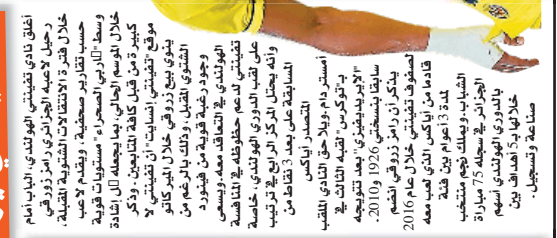 أغلق نادي تفينتي الهولندي، الباب أمام
رحيل لاعبه الجزائري رامز زروقي
خلال فترة الانتقالات الشتوية المقبلة،
حسب تقارير صحفية. ويقدم لاعب
وسط "ﷲاربي الصحراء" مستويات قوية
خلال الموسم الحالي، بما يجعله ﷲل إشادة
كبيرة من قبل كافة المتابعين. وذكر
موقع "تفينتي إنسايت" أن تفينتي لا
ينوي بيع زروقي خلال الميركاتو
الشتوي المقبل، وذلك بالرغم من
وجود رغبة قوية من فينورد
الهولندي في التعاقد معه. ويسعى
تفينتي لدعم حظوظه في المنافسة
على لقب الدوري الهولندي، خاصة
وأنه يحتل المركز الرابع في ترتيب
المسابقة على بعد 3 نقاط من
المتصدر أياكس
أمستردام. ويلاحق النادي الملقب
بـ"توكرس" لقبه الثالث في
"الايرديفيزي" بعد تتويجه
سابقا بنسختي 1926 و2010.
يذكر أن رامز زروقي انضم
لصفوف تفينتي خلال عام 2016
قادما من أياكس الذي لعب معه
لمدة 3 أعوام بين فئة
الشباب. ويملك نجم منتخب
الجزائر في سجله 75 مباراة
بالدوري الهولندي أسهم
خلالها بـ5 أهداف بين
صناعة وتسجيل.